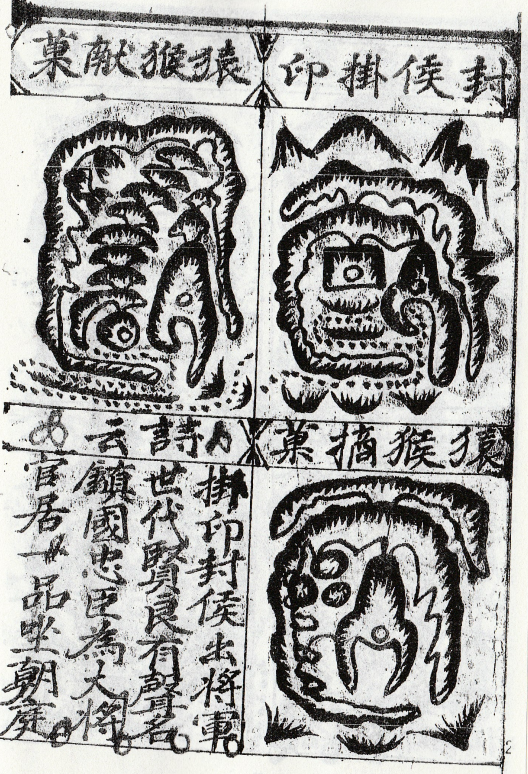 封侯掛印
猿猴献菓
猿猴摘菓
詩云
掛印封侯出将軍
世代賢良有聲名
鎮國忠臣為大将
官居一品坐朝庭